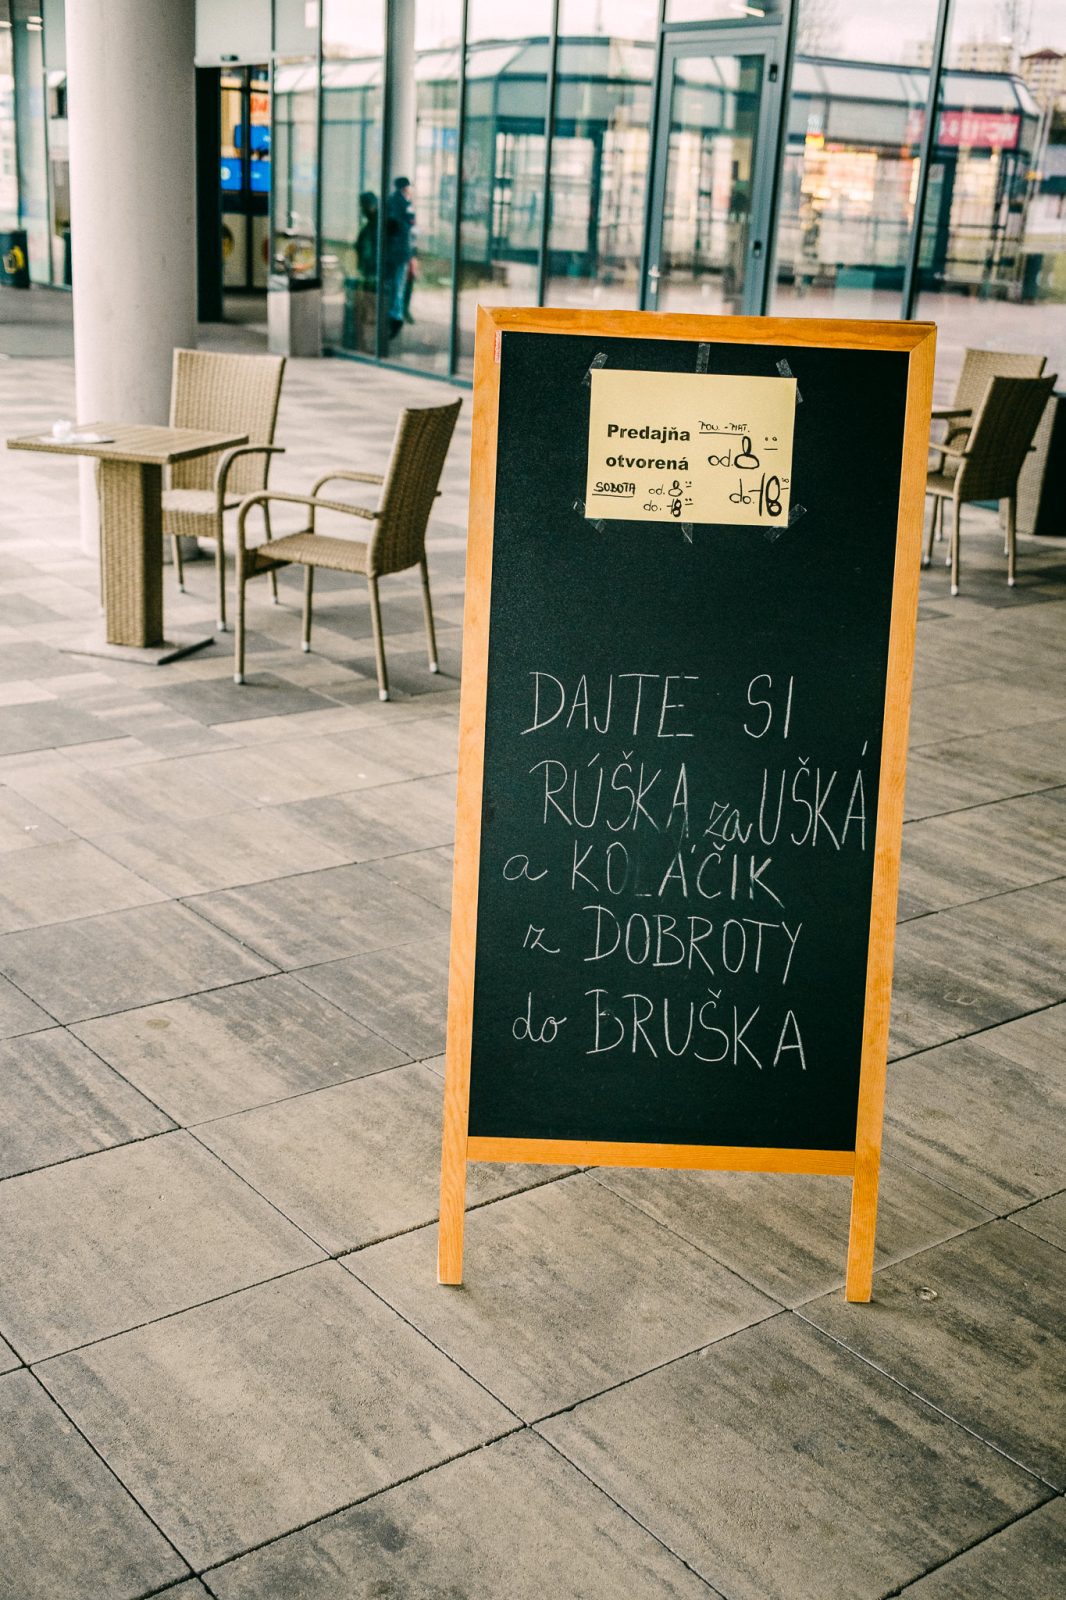 Predajňa
otvorená
od 8:00
do 18:00
SOBOTA od 8:00
do 18:00
DAJTE SI
RÚŠKA za UŠKÁ
a KOLÁČIK
z DOBROTY
do BRUŠKA